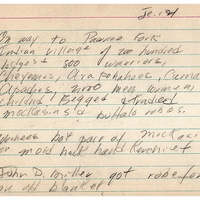 On way to Pawnee Fork
Indian Village of 200 hundred
lodges 800 warriors,
Cheyennes, Arapahoes,
Apaches, 2000 men, women,
Children Begged traded
moccasins & buffalo robes.
pair of mockasi
for old handkerchief
John D. Miller got robe for
an old blanket